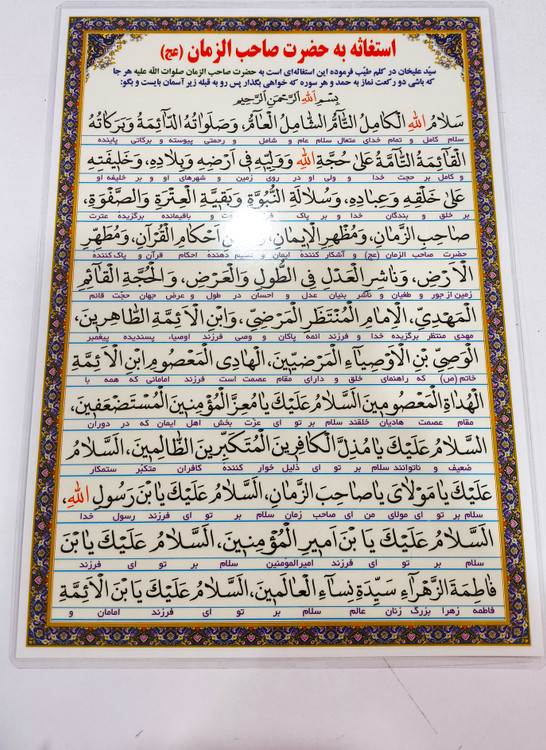 استغاثه به حضرت صاحب الزمان (عج)
سیّد علیخان در کلم طیّب فرموده این استغاثه‌ای است به حضرت صاحب الزمان صلوات الله علیه هر جا
که باشی دو رکعت نماز به حمد و هر سوره که خواهی بگذار پس رو به قبله زیر آسمان بایست و بگو:
بِسْمِ اللهِ الرَّحْمٰنِ الرَّحِیمِ
سَلامُ اللهِ الْکامِلُ التّآمُّ الشّامِلُ الْعآمُّ، وَصَلَواتُهُ الدّآئِمَةُ وَبَرَکاتُهُ
سلام کامل و تمام خدای متعال سلام عام و شامل و رحمتی پیوسته و برکاتی پاینده
الْقآئِمَةُ التّآمَّةُ عَلیٰ حُجَّةِ اللهِ وَوَلِیِّهِ فی اَرْضِهِ وَبِلادِهِ، وَخَلیفَتِهِ
و کامل بر حجت خدا و ولی او در روی زمین و شهرهای او و بر خلیفه او
عَلیٰ خَلْقِهِ وَعِبادِهِ، وَسُلالَةِ النُّبُوَّةِ وَبَقِیَّةِ الْعِتْرَةِ وَالصَّفْوَةِ،
بر خلق و بندگان خدا و بر پاک و باقیمانده برگزیده عترت
صاحِبِ الزَّمانِ، وَمُظْهِرِ الْایمانِ، اَحْکامِ الْقُرآنِ، وَمُطَهِّرِ
حضرت صاحب الزمان (عج) و آشکار کننده ایمان و دهنده احکام قرآن و پاک کننده
الْاَرْضِ، وَناشِرِ الْعَدْلِ فِی الطُّولِ وَالْعَرْضِ، وَالْحُجَّةِ الْقآئِمِ
زمین از جور و طغیان و ناشر بنیان عدل و احسان در طول و عرض جهان حجّت قائم
الْمَهْدِیِّ، الْاِمامِ الْمُنْتَظَرِ الْمَرْضِیِّ، وَابْنِ الْاَئِمَّةِ الطّاهِرینَ،
مهدی منتظر برگزیده خدا و فرزند ائمه پاکان و وصی فرزند اوصیاء پسندیده پیغمبر
الْوَصِیِّ بْنِ الْاَوْصِیآءِ الْمَرْضِیّینَ، الْهادِی الْمَعْصُومِ ابْنِ الْاَئِمَّةِ
خاتم (ص) که راهنمای خلق و دارای مقام عصمت است فرزند امامانی که همه با
الْهُداةِ الْمَعْصُومینَ اَلسَّلامُ عَلَیْکَ یا مُعِزَّ الْمُؤْمِنینَ الْمُسْتَضْعَفینَ،
مقام عصمت هادیان خلقند سلام بر تو ای عزت بخش اهل ایمان که در دوران
اَلسَّلامُ عَلَیْکَ یا مُذِلَّ الْکافِرینَ الْمُتَکَبِّرینَ الظّالِمینَ، اَلسَّلامُ
ضعیف و ناتوانند سلام بر تو ای ذلیل خوار کننده کافران متکبّر ستمکار
عَلَیْکَ یا مَوْلایَ یا صاحِبَ الزَّمانِ، اَلسَّلامُ عَلَیْکَ یَا بْنَ رَسُولِ اللهِ،
سلام بر تو ای مولای من ای صاحب زمان سلام بر تو ای فرزند رسول خدا
اَلسَّلامُ عَلَیْکَ یَا بْنَ اَمیرِ الْمُؤْمِنینَ، اَلسَّلامُ عَلَیْکَ یَا بْنَ
سلام بر تو ای فرزند امیرالمومنین سلام بر تو ای فرزند
فاطِمَةَ الزَّهْرآءِ سَیِّدَةِ نِسآءِ الْعالَمینَ، اَلسَّلامُ عَلَیْکَ یَا بْنَ الْاَئِمَّةِ
فاطمه زهرا بزرگ زنان عالم سلام بر تو ای فرزند امامان و